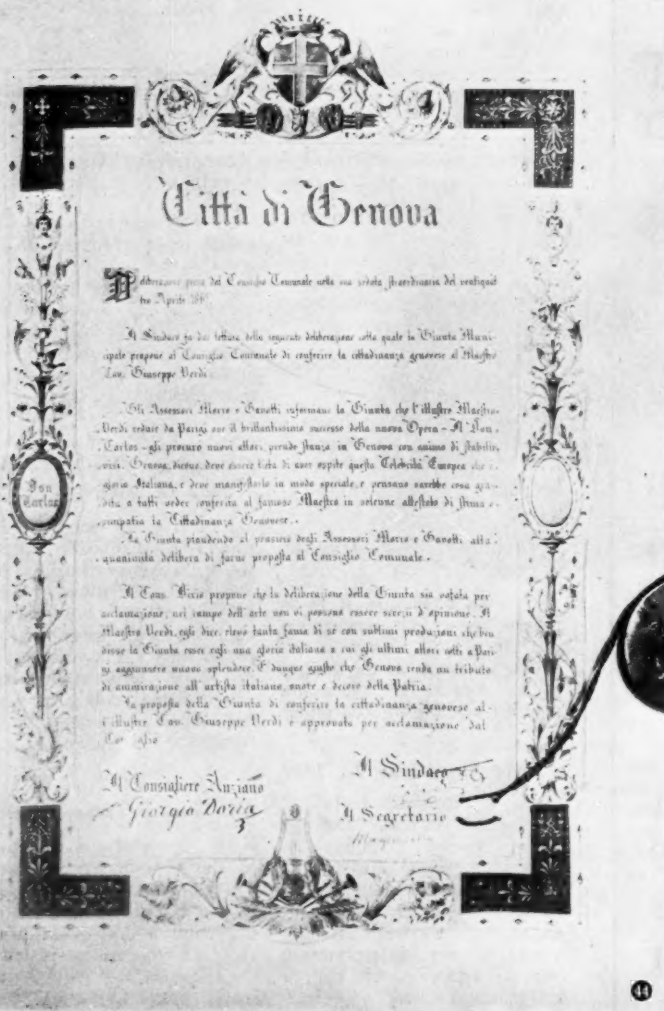 Città di Genova
Deliberazione presa dal Consiglio Comunale nella sua seduta straordinaria del ventiquat
tro Aprile 1867
Il Sindaco fa dar lettura della seguente deliberazione colla quale la Giunta Muni-
cipale propone al Consiglio Comunale di conferire la cittadinanza genovese al Maestro
Cav. Giuseppe Verdi.
Gli Assessori Morro e Gavotti informano la Giunta che l'illustre Maestro
Verdi reduce da Parigi ove il brillantissimo successo della nuova Opera - Il Don
Carlos - gli procurò nuovi allori, prende stanza in Genova con animo di stabilir-
visi. Genova, dicono, deve essere lieta di aver ospite questa Celebrità Europea che è
gloria Italiana, e deve manifestarlo in modo speciale, e pensano sarebbe cosa gra-
dita a tutti veder conferita al famoso Maestro in solenne attestato di stima e
simpatia la Cittadinanza Genovese.
La Giunta plaudendo al pensiero degli Assessori Morro e Gavotti alla
quanimità delibera di farne proposta al Consiglio Comunale.
Il Cons. Bixio propone che la deliberazione della Giunta sia votata per
acclamazione, nel campo dell'arte non vi possono essere screzii d'opinione. Il
Maestro Verdi, egli dice, elevò tanta fama di sè con sublimi produzioni che ben
disse la Giunta esser egli una gloria italiana a cui gli ultimi allori colti a Pari-
gi aggiunsero nuovo splendore. È dunque giusto che Genova renda un tributo
di ammirazione all'artista italiano, onore e decoro della Patria.
La proposta della Giunta di conferire la cittadinanza genovese al-
l'illustre Cav. Giuseppe Verdi è approvata per acclamazione dal
Consiglio
Don
Carlos
Il Consigliere Anziano
Giorgio Doria
Il Sindaco
Il Segretario
44